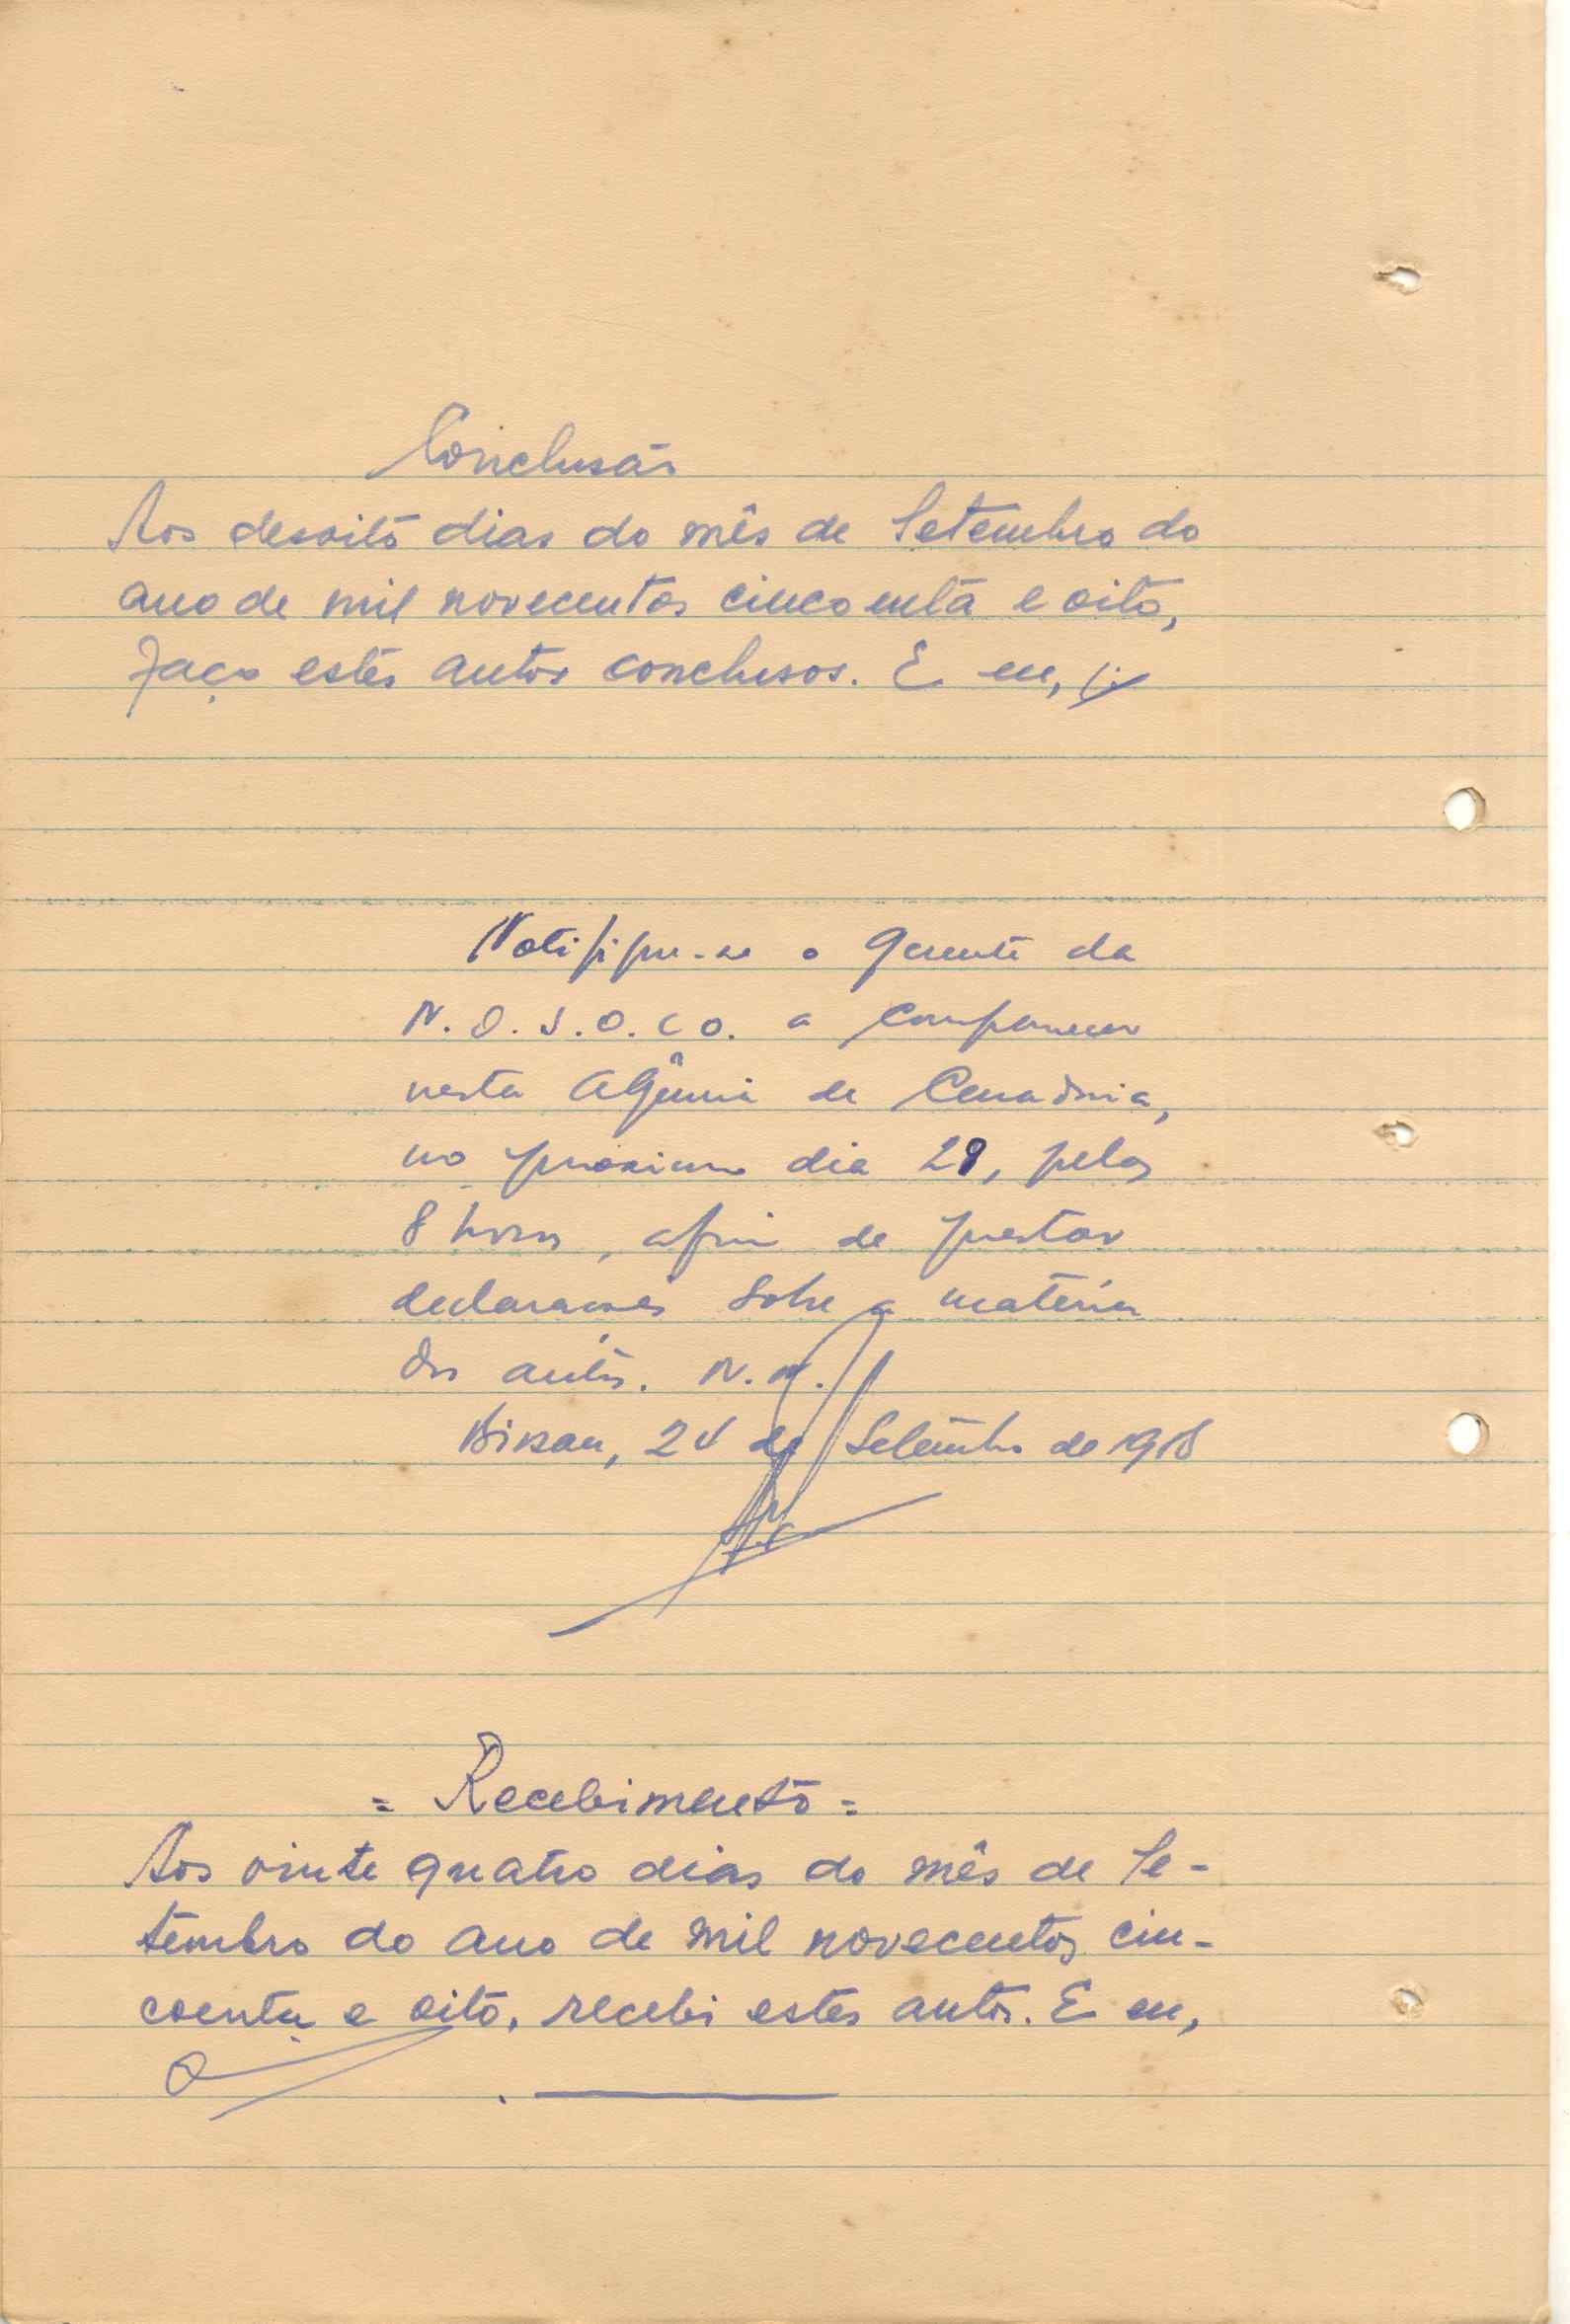 Conclusão
Aos desoito dias do mês de Setembro do
ano de mil novecentos cincoenta e oito,
faço estes autos conclusos. E eu,
Notifique-se o gerente da
N.O.S.O.CO. a comparecer
nesta
no proximo dia 28, pelas
8 horas, afim de prestar
declarações sobre a matéria
dos autos. N.
Bissau, 24 de Setembro de 1958
= Recebimento =
Aos vinte quatro dias do mês de Se-
tembro do ano de mil novecentos cin-
coenta e oito, recebi estes autos. E eu,